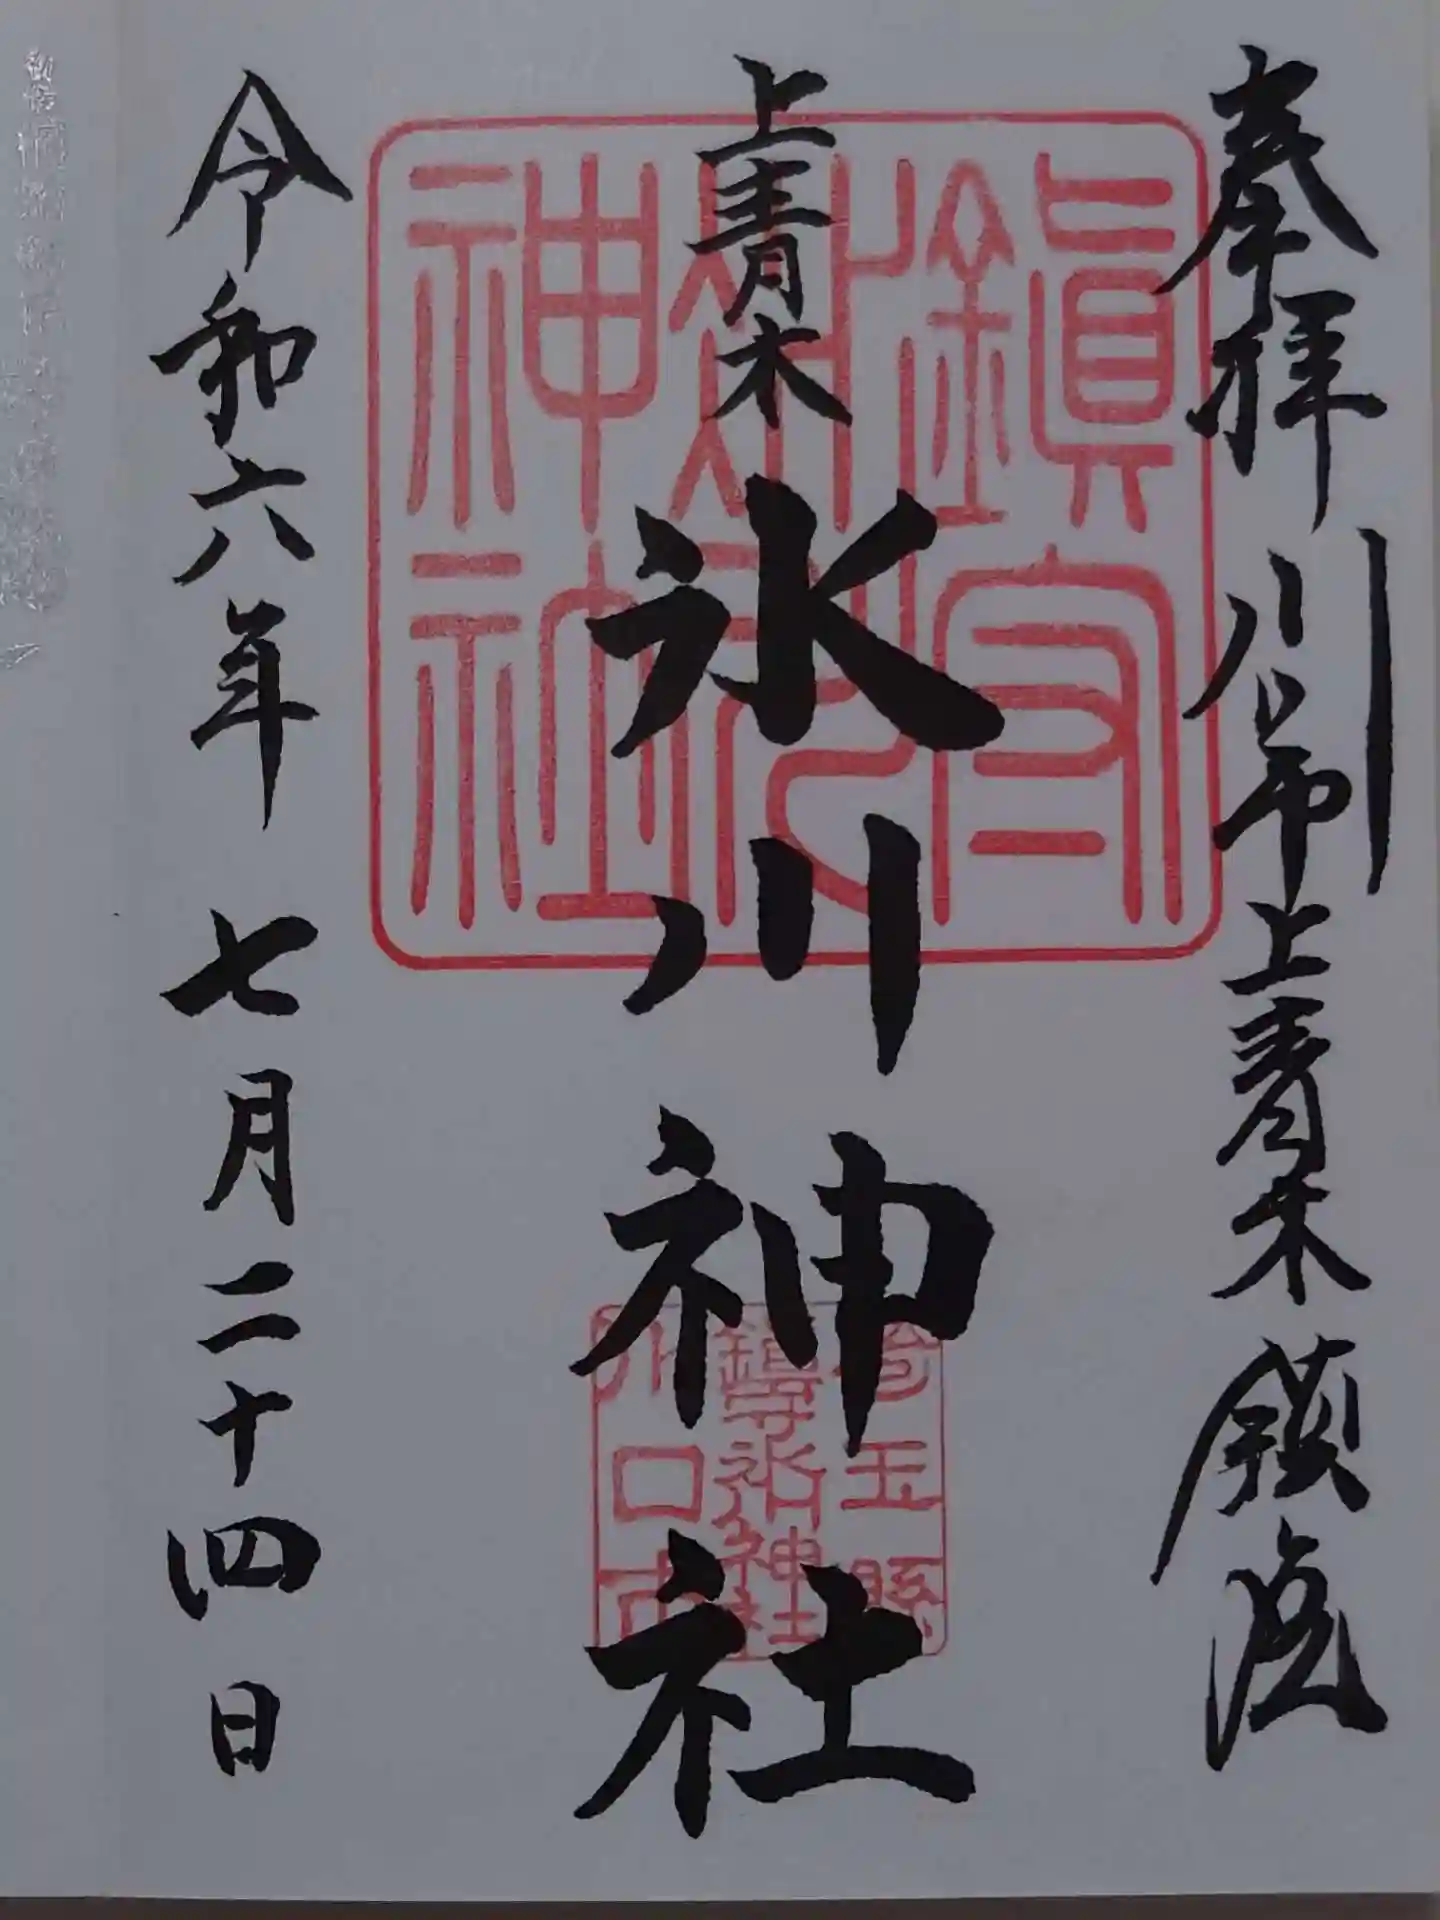 奉拝 川口市上青木鎮座
上青木
氷川神社
令和六年 七月二十四日
鎮守
氷川
神社
埼玉縣
鎮守氷川神社
川口市